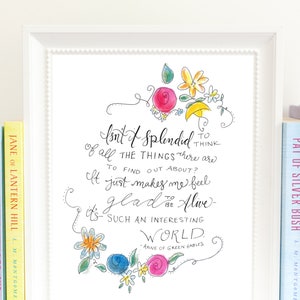 Isn't it splendid TO THINK
of all THE THINGS there are
TO FIND OUT ABOUT?
It just makes me feel
glad TO BE Alive
it's SUCH AN INTERESTING
WORLD.
-ANNE OF GREEN GABLES
JANE OF LANTERN HILL
L. M. MONTGOMERY
PAT OF SILVER BUSH
L. M. MONTGOMERY